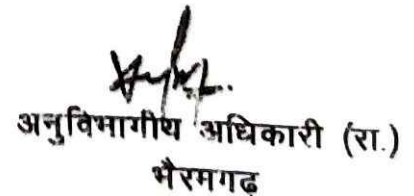 अनुविभागीय अधिकारी (रा.)
भैरमगढ़